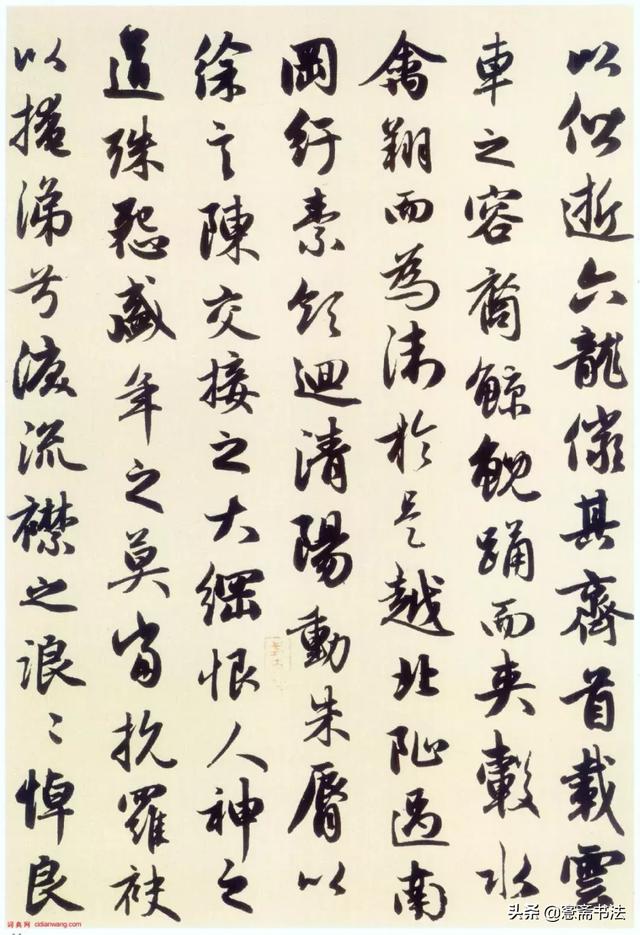 以偕逝六龍儼其齊首載雲
車之容裔鯨鯢踊而夾轂水
禽翔而為衛於是越北沚過南
岡紆素領迴清陽動朱脣以
徐言陳交接之大綱恨人神之
道殊怨盛年之莫當抗羅袂
以掩涕兮淚流襟之浪〻悼良
词典网 cidianwang.com
头条 @愙斋书法